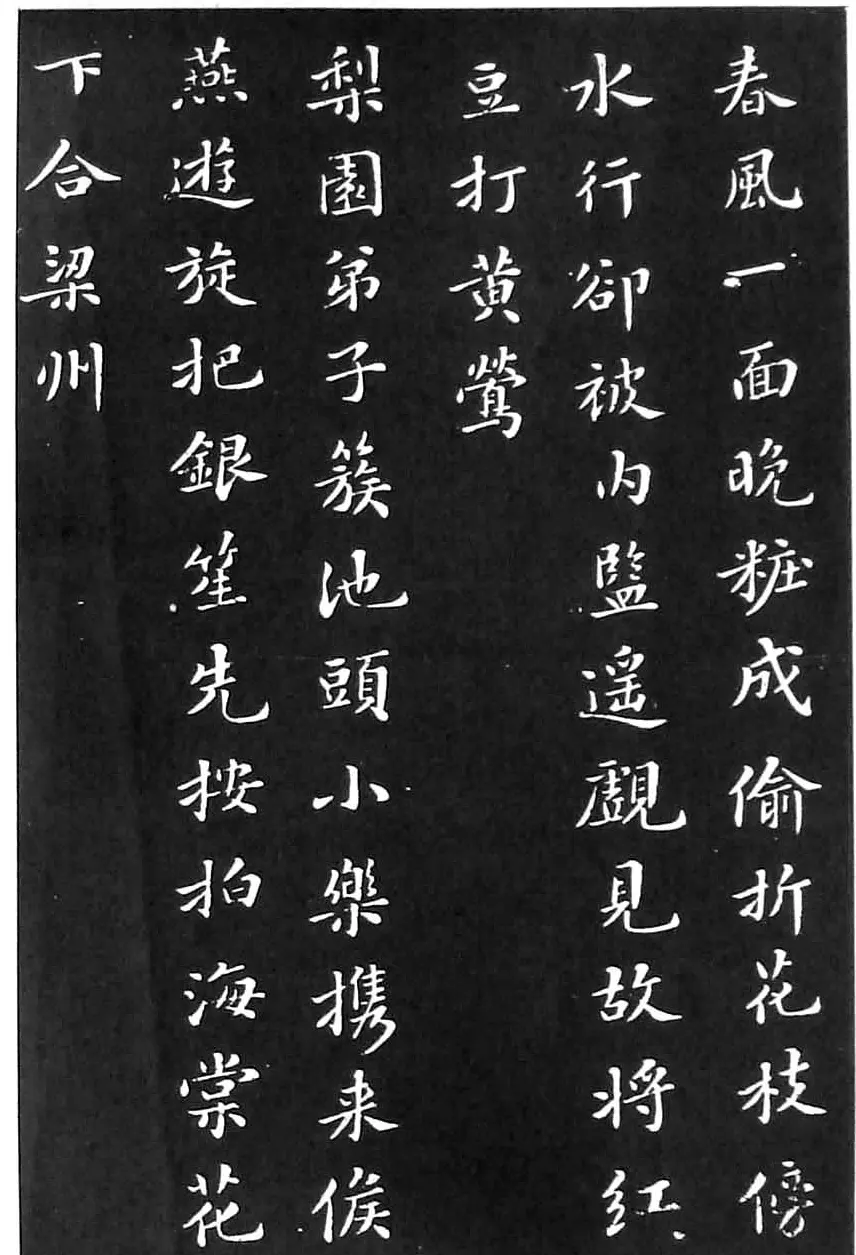 春風一面晚粧成偷折花枝傍
水行卻被內監遥覷見故将紅
豆打黄鶯
梨園弟子簇池頭小樂携来俟
燕遊旋把銀笙先按拍海棠花
下合梁州